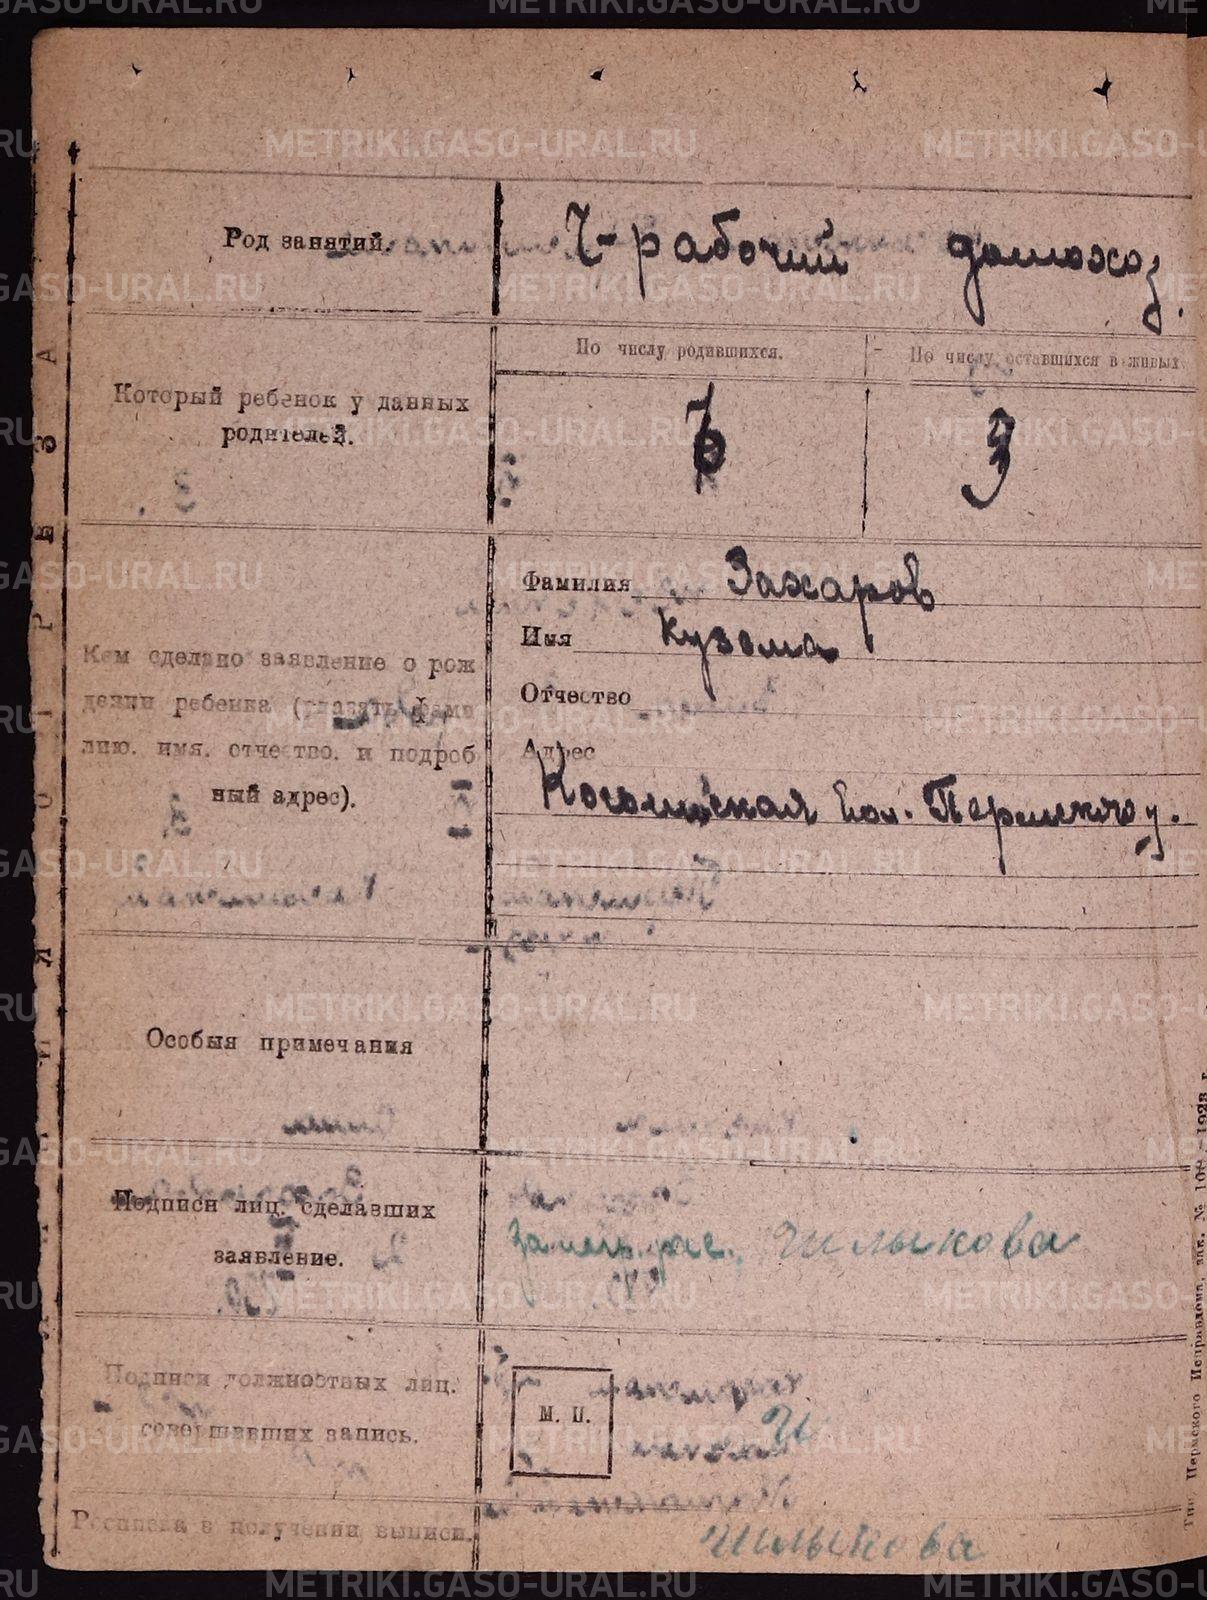 METRIKI.GASO-URAL.RU
Род занятий.
Ч-рабочий домохоз.
Который ребенок у данных
родителей.
По числу родившихся.
По числу оставшихся в живых
3
Кем сделано заявление о рож
дении ребенка (указать фами
лию, имя, отчество, и подроб
ный адрес).
Фамилия Захаров
Имя Кузьма
Отчество
Адрес
вол. Пермского у.
Особыя примечания
Подписи лиц, сделавших
заявление.
Чилыкова
Подписи должностных лиц,
совершивших запись.
М. П.
Росписка в получении выписи.
Чилыкова
О Т Р Е З А
Л И Н И Я
Тип. Пермского Исправдома, зак. № 100—1923 г.